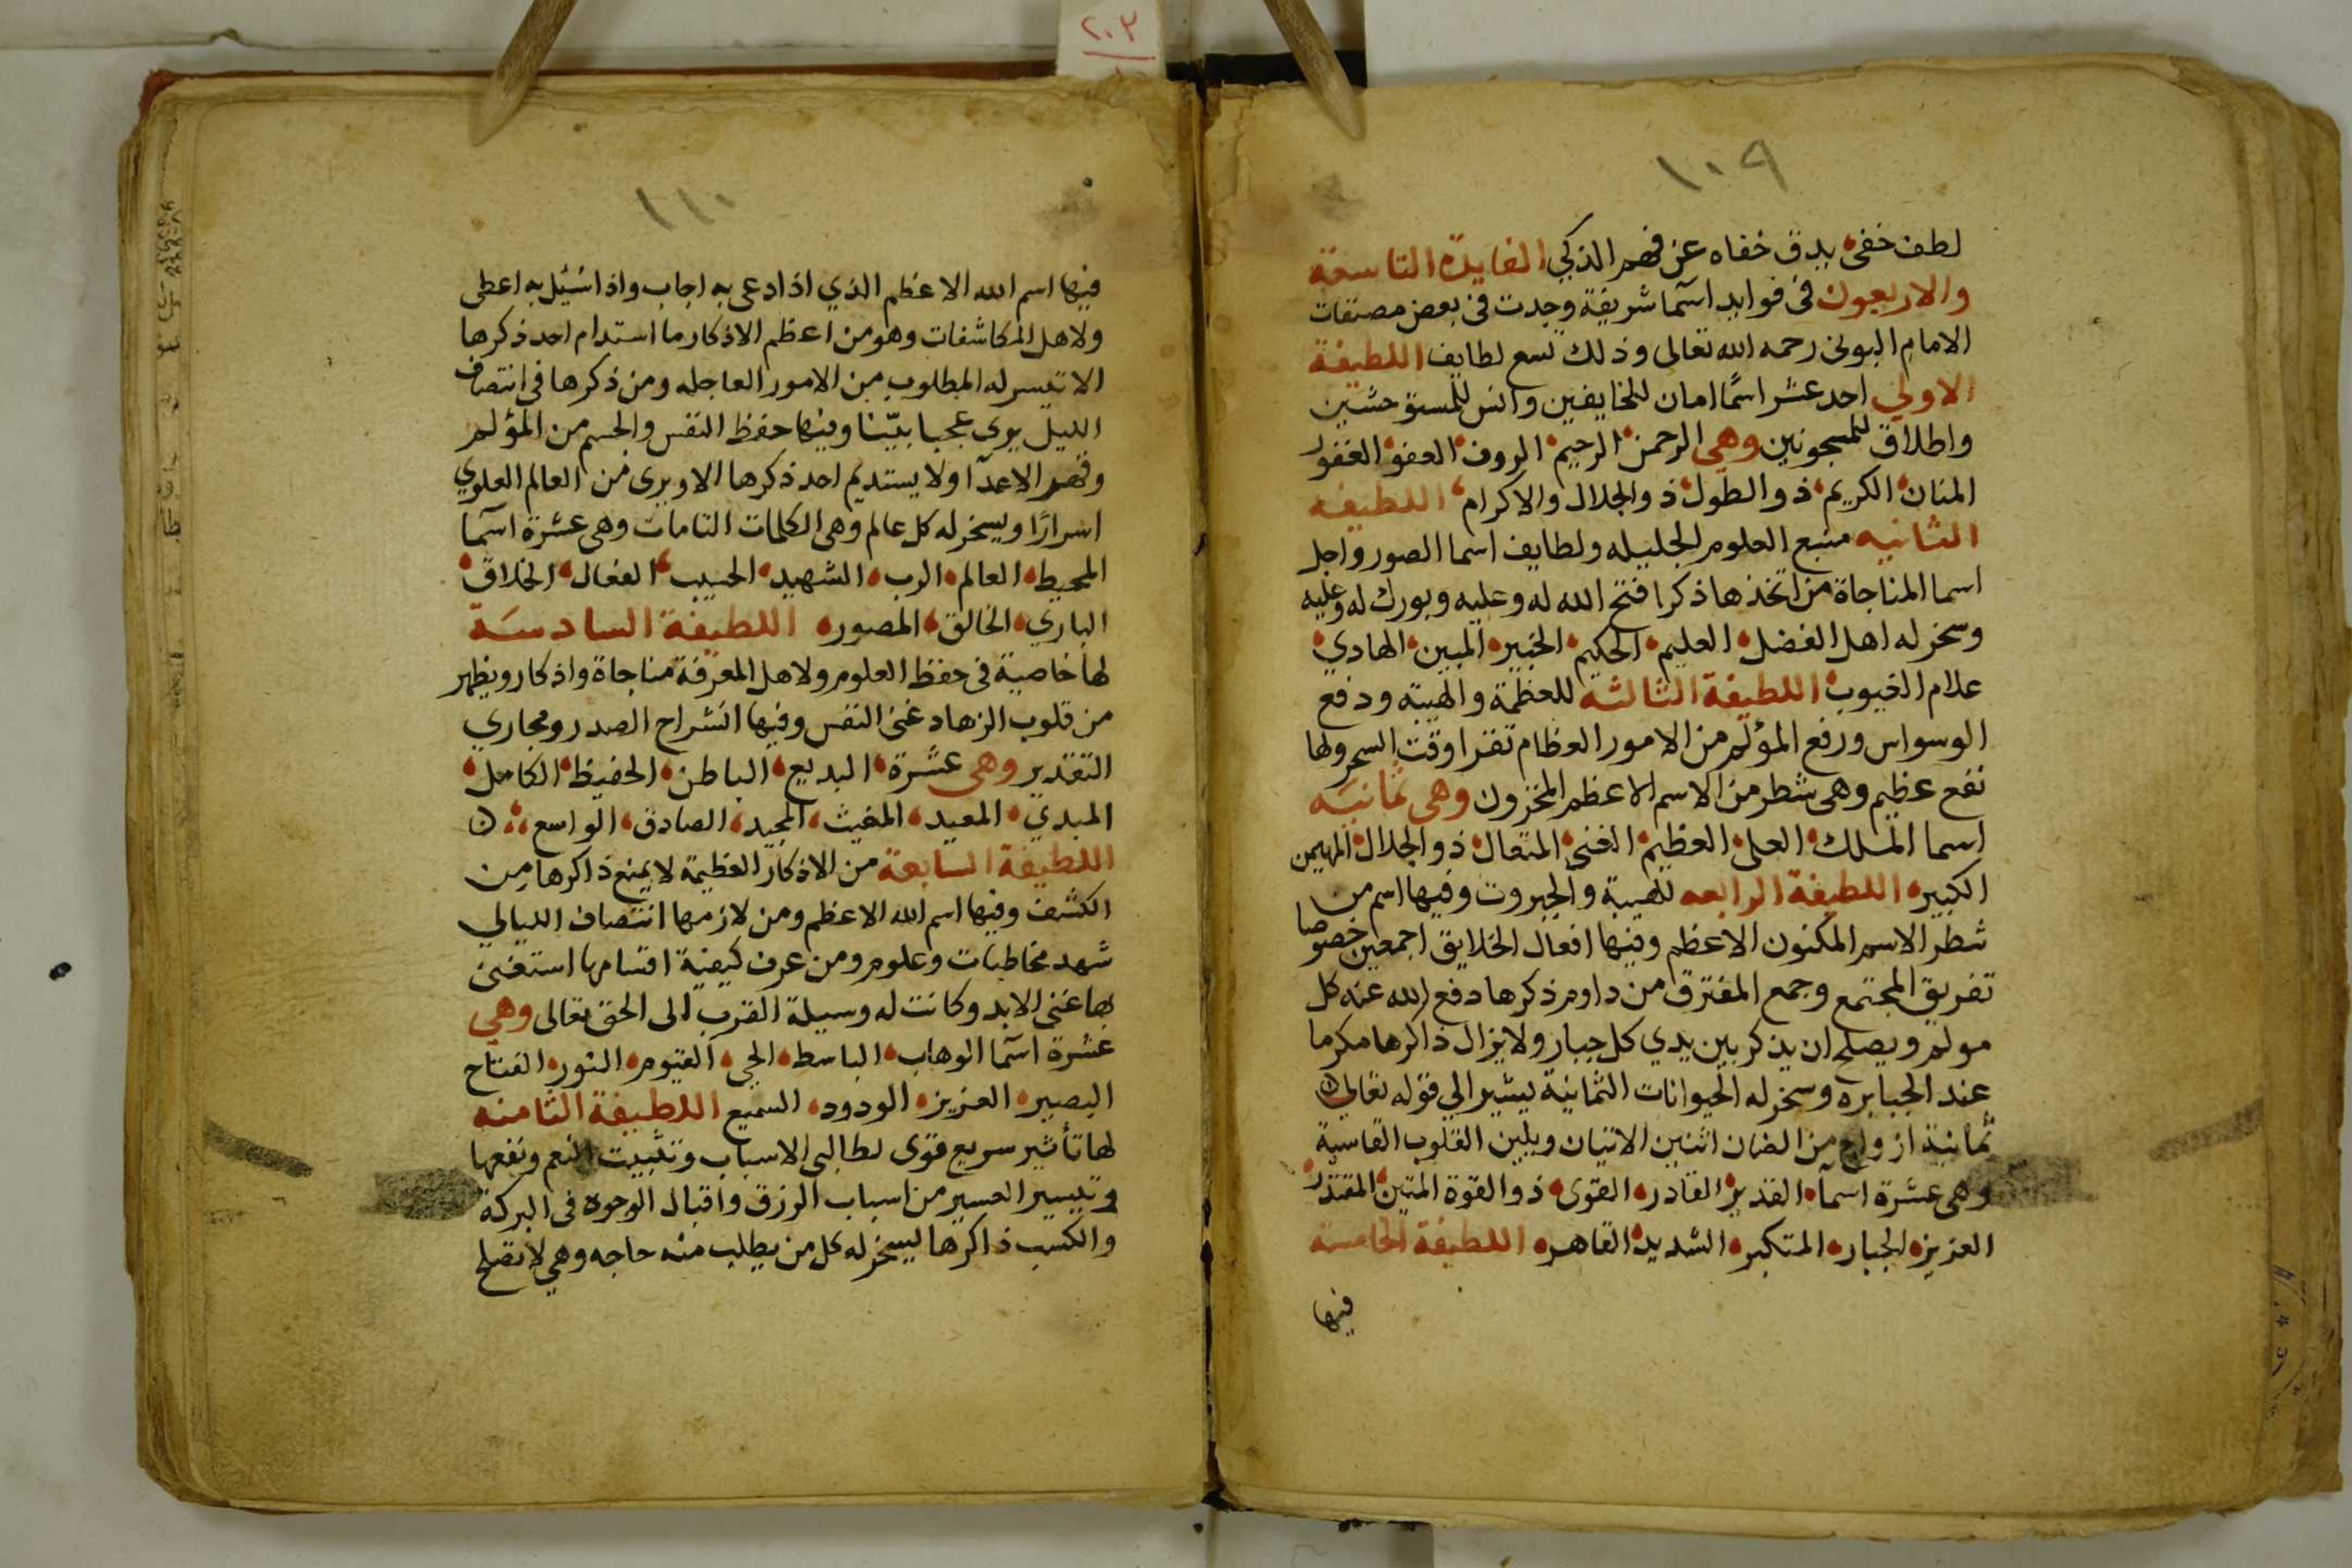 ٢٠٣
١٠٩
لطف خفى يدق خفاه عن فهم الذكي الفايدة التاسعة
والاربعون فى فوايد اسما شريفة وجدت فى بعض مصنفات
الامام البونى رحمه الله تعالى وذلك تسع لطايف اللطيفة
الاولي احد عشر اسمًا امان للخايفين وانس للمستوحشين
واطلاق للمسجونين وهى الرحمن الرحيم الروف العفو الغفور
المنان الكريم ذو الطول ذو الجلال والاكرام اللطيفه
الثانيه منبع العلوم الجليله ولطايف اسما الصور واجل
اسما المناجاة من اتخذها ذكرا فتح الله له وعليه وبورك له وعليه
وسخر له اهل الفضل العليم الحكيم الخبير المبين الهادي
علام الغيوب اللطيفة الثالثه للعظمة والهيبه ودفع
الوسواس ورفع المؤلم من الامور العظام تقرا وقت السحر ولها
نفع عظيم وهى شطر من الاسم الاعظم المخزون وهى ثمانيه
اسما الملك العلى العظيم الغنى المتعال ذو الجلال المهيمن
الكبير اللطيفة الرابعه للهيبة والجبروت وفيها اسم من
شطر الاسم المكنون الاعظم وفيها افعال الخلايق اجمعين خصوصا
تفريق المجتمع وجمع المفترق من داوم ذكرها دفع الله عنه كل
مولم ويصلح ان يذكر بين يدي كل جبار ولا يزال ذاكرها مكرما
عند الجبابره وسخر له الحيوانات الثمانية يشير الي قوله تعالى
ثمانية ازواج من الضان اثنين الاتيان ويلين القلوب القاسية
وهى عشرة اسما القدير القادر القوى ذو القوة المتين المقتدر
العزيز الجبار المتكبر الشديد القاهر اللطيفة الخامسة
فيها
١١٠
فيها اسم الله الاعظم الذي اذا دعى به اجاب واذا سُئيل به اعطى
ولاهل المكاشفات وهو من اعظم الاذكار ما استدام احد ذكرها
الا تيسر له المطلوب من الامور العاجله ومن ذكرها فى انتصاف
الليل يرى عجبا بيّنا وفيها حفظ النفس والجسم من المؤلم
وقهر الاعدآ ولا يستديم احد ذكرها الا ويرى من العالم العلوي
اسرارًا ويسخر له كل عالم وهى الكلمات التامات وهى عشرة اسما
المحيط العالم الرب الشهيد الحسيب الفعال الخلاق
الباري الخالق المصور اللطيفة السادسَة
لها خاصية فى حفظ العلوم ولاهل المعرفة مناجاة واذكار ويظهر
من قلوب الزهاد غنى النفس وفيها انشراح الصدر ومجاري
التقدير وهى عشرة البديع الباطن الحفيظ الكامل
المبدي المعيد المغيث المجيد الصادق الواسع
اللطيفة السابعة من الاذكار العظيمة لا يمنع ذاكرها من
الكشف وفيها اسم الله الاعظم ومن لازمها انتصاف الليالي
شهد مخاطبات وعلوم ومن عرف كيفية اقسامها استغنى
بها غنى الابد وكانت له وسيلة القرب الى الحق تعالى وهي
عشرة اسما الوهاب الباسط الحى القيوم النور الفتاح
البصير العزيز الودود السميع اللطيفة الثامنه
لها تأثير سريع قوى لطالبى الاسباب وتثبيت النعم ونفعها
وتيسير العسير من اسباب الرزق واقبال الوجوه فى البركة
والكسب ذاكرها ليسخر له كل من يطلب منه حاجه وهي لا تصلح